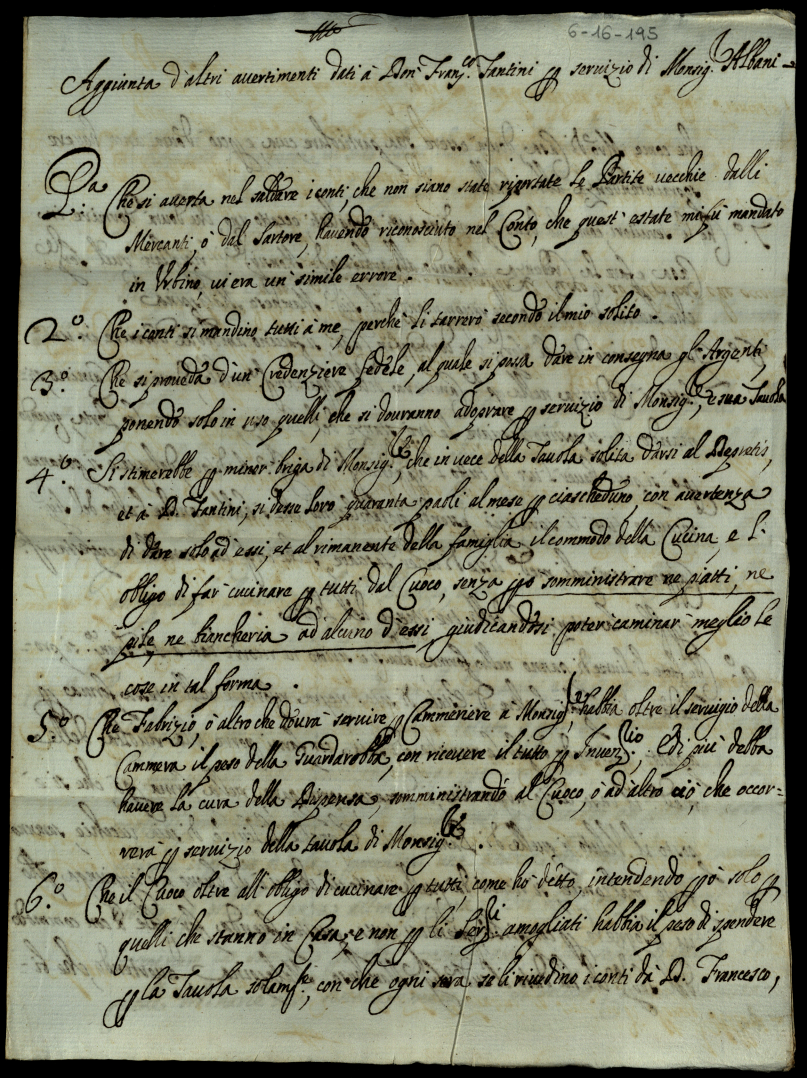 6-16-195
Aggiunta d'altri auertimenti dati à Don Franc.co Fantini per seruizio di Monsig.r Albani
P.a Che si auerta nel saldare i conti, che non siano state riportate le Partite uecchie dalli
Mercanti, ò dal Sartore, hauendo riconosciuto nel Conto, che quest' estate mi fù mandato
in Vrbino, ui era un simile errore.
2.o Che i conti si mandino tutti à me, perche li tarrerò secondo il mio solito.
3.o Che si proueda d'un Credenziere fedele, al quale si possa dare in consegna gl' Argenti,
ponendo solo in uso quelli, che si douranno adoprare per seruizio di Monsig.re, e sua Tauola
4.o Si stimerebbe per minor briga di Monsig.re, che in uece della Tauola solita darsi al Depretis,
et à D. Fantini, si desse loro quaranta paoli al mese per ciascheduno, con auertenza
di dare solo ad essi, et al rimanente della famiglia il commodo della Cucina, e l'
obligo di far cucinare per tutti dal Cuoco, senza però somministrare ne piatti, ne
pile, ne biancheria ad alcuno d'essi, giudicandosi poter caminar meglio le
cose in tal forma.
5.o Che Fabrizio, ò altro che dourà seruire per Cammeriere à Monsig.re habbia oltre il seruigio della
Cammera il peso della Guardarobba, con riceuere il tutto per Inuen.rio; E di più debba
hauere la cura della Dispensa, somministrando al Cuoco, ò ad altro ciò, che occor=
rerà per seruizio della tauola di Monsig.re.
6.o Che il Cuoco oltre all' obligo di cucinare per tutti, come hò detto, intendendo però solo per
quelli che stanno in Casa, e non per li Ser.ri amogliati habbia il peso di spendere
per la Tauola solam.te, con che ogni sera se li riuedino i conti da D. Francesco,